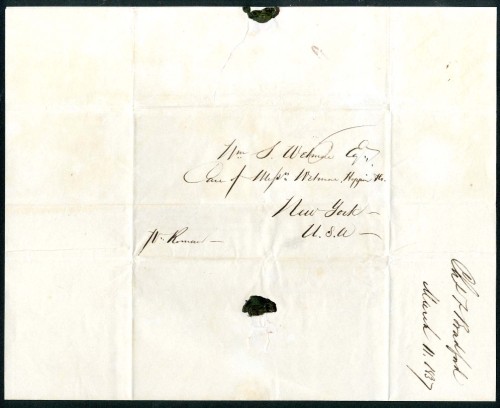 Wm S. Wetmore Esqr.
Care of Messrs. Wetmore, &
New York
U.S.A
Pr. Roman
Chs F. Bradford
March 11. 1837